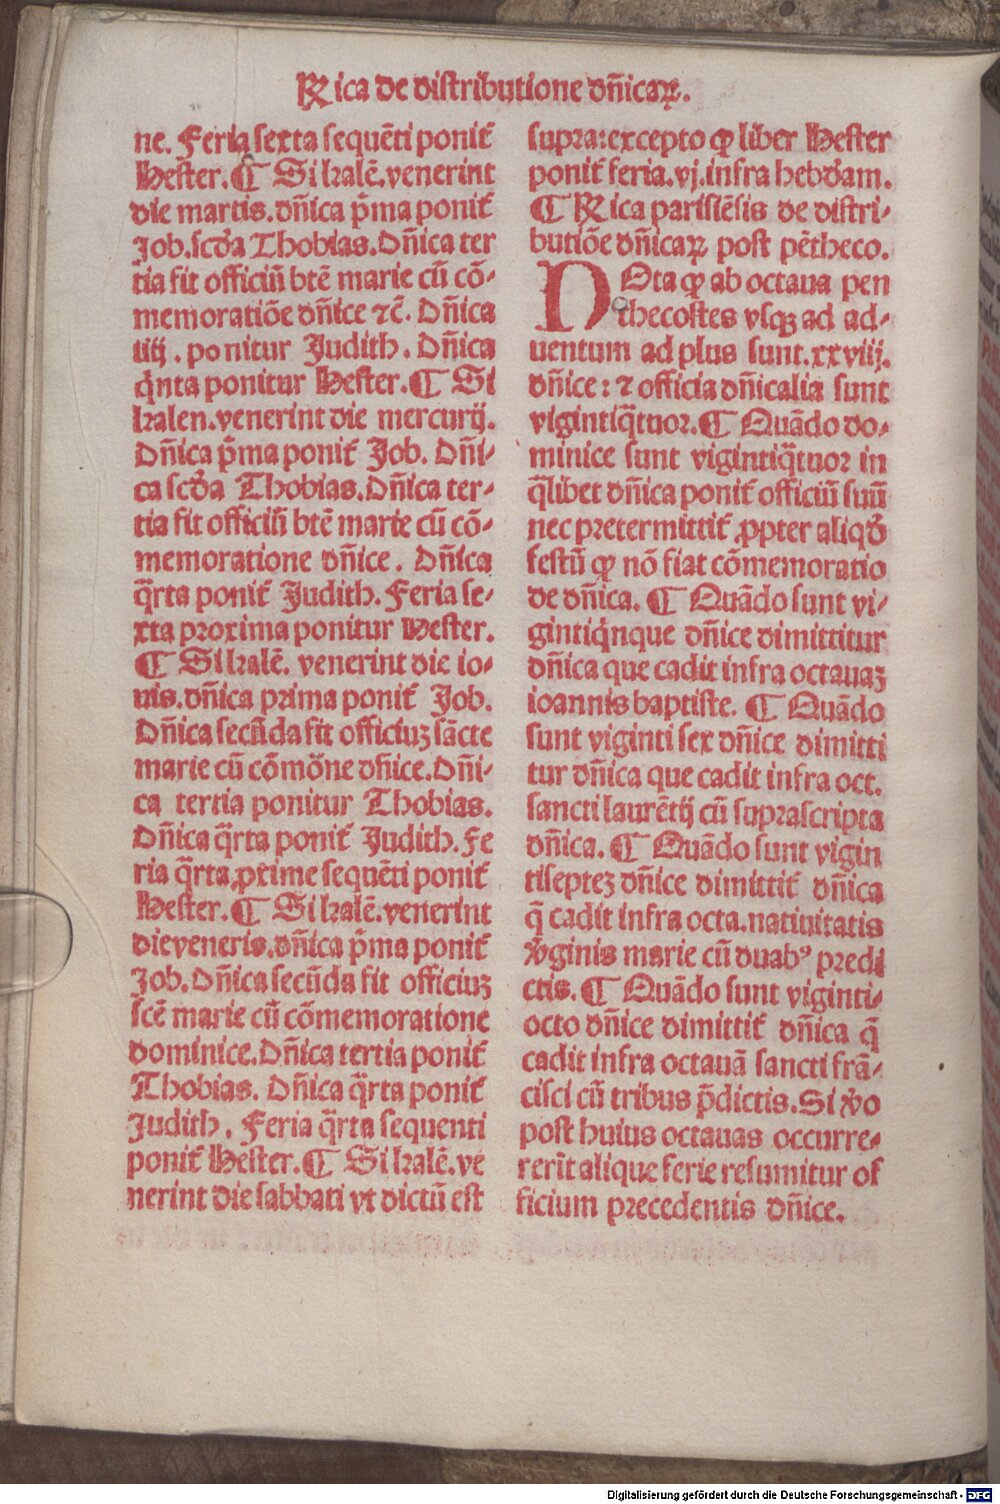 Rica de distributione dñicaꝝ.
ne. Feria sexta sequēti ponit᷑
Hester. ¶ Si kalē. venerint
die martis. dñica p̄ma ponit᷑
Job. scďa Thobias. Dñica ter
tia fit officiū btē marie cū cō-
memoratiōe dñice ⁊c̄. Dñica
iiij . ponitur Judith . Dñica
q̇nta ponitur Hester. ¶ Si
kalen. venerint die mercurij.
Dñica p̄ma ponit᷑ Job. Dñi-
ca scďa Thobias. Dñica ter-
tia fit officiū btē marie cū cō-
memoratione dñice . Dñica
q̈rta ponit᷑ Judith. Feria se-
xta proxima ponitur Hester.
¶ Si kalē. venerint die io-
uis. dñica prima ponit᷑ Job.
Dñica secūda fit officiuꝫ sācte
marie cū cōmōne dñice. Dñi-
ca tertia ponitur Thobias.
Dñica q̈rta ponit᷑ Judith. Fe
ria q̈rta ꝓxime sequēti ponit᷑
Hester. ¶ Si kalē. venerint
die veneris. dñica p̄ma ponit᷑
Job. Dñica secūda fit officiuꝫ
scē marie cū cōmemoratione
dominice. Dñica tertia ponit᷑
Thobias. Dñica q̈rta ponit᷑
Judith . Feria q̈rta sequenti
ponit᷑ Hester. ¶ Si kalē. ve
nerint die sabbati vt dictū est
supra: excepto ꝙ liber Hester
ponit᷑ feria. vj. infra hebdam.
¶ Rica parisiēsis de distri-
butiōe dñicaꝝ post pētheco.
NOta ꝙ ab octaua pen
thecostes vsqꝫ ad ad-
uentum ad plus sunt. xxviij.
dñice: ⁊ officia dñicalia sunt
vigintiq̈tuor. ¶ Quādo do-
minice sunt vigintiq̈tuor in
q̄libet dñica ponit᷑ officiū suū
nec pretermittit᷑ ꝓpter aliqď
festū ꝙ nō fiat cōmemoratio
de dñica. ¶ Quādo sunt vi-
gintiq̇nque dñice dimittitur
dñica que cadit infra octauaꝫ
ioannis baptiste. ¶ Quādo
sunt viginti sex dñice dimitti
tur dñica que cadit infra oct.
sancti laurētij cū suprascripta
dñica. ¶ Quādo sunt vigin
tisepteꝫ dñice dimittit᷑ dñica
q̄ cadit infra octa. natiuitatis
v̾ginis marie cū duabꝰ predi
ctis. ¶ Quādo sunt viginti-
octo dñice dimittit᷑ dñica q̄
cadit infra octauā sancti frā-
cisci cū tribus p̄dictis. Si v̾o
post huius octauas occurre-
rerīt alique ferie resumitur of
ficium precedentis dñice.
Digitalisierung gefördert durch die Deutsche Forschungsgemeinschaft - DFG